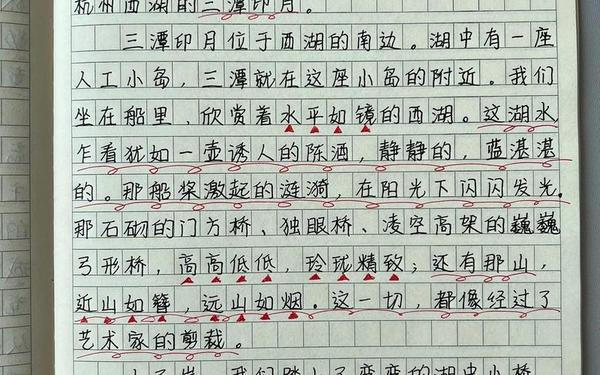 杭州西湖的三潭印月。
三潭印月位于西湖的南边。湖中有一座
人工小岛，三潭就在这座小岛的附近。我们
坐在船里、欣赏着水平如镜的西湖。这湖水
乍看犹如一壶诱人的陈酒，静静的，蓝湛湛
的。那船桨激起的涟漪，在阳光下闪闪发光。
那石砌的门方桥、独眼桥、凌空高架的巍巍
弓形桥，高高低低，玲珑精致；还有那山，
近山如簪，远山如烟。这一切，都像经过了
艺术家的剪裁。
上了岸，我们踏上了弯弯的湖中小桥